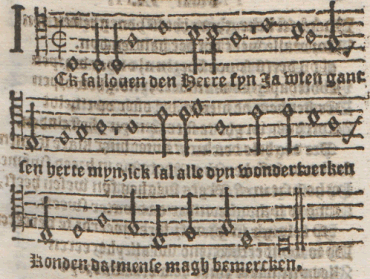 Ick sal louen den Herre fyn Ja wten gant
sen herte myn, ick sal alle dyn wonderwerken
Konden datmense magh bemercken.